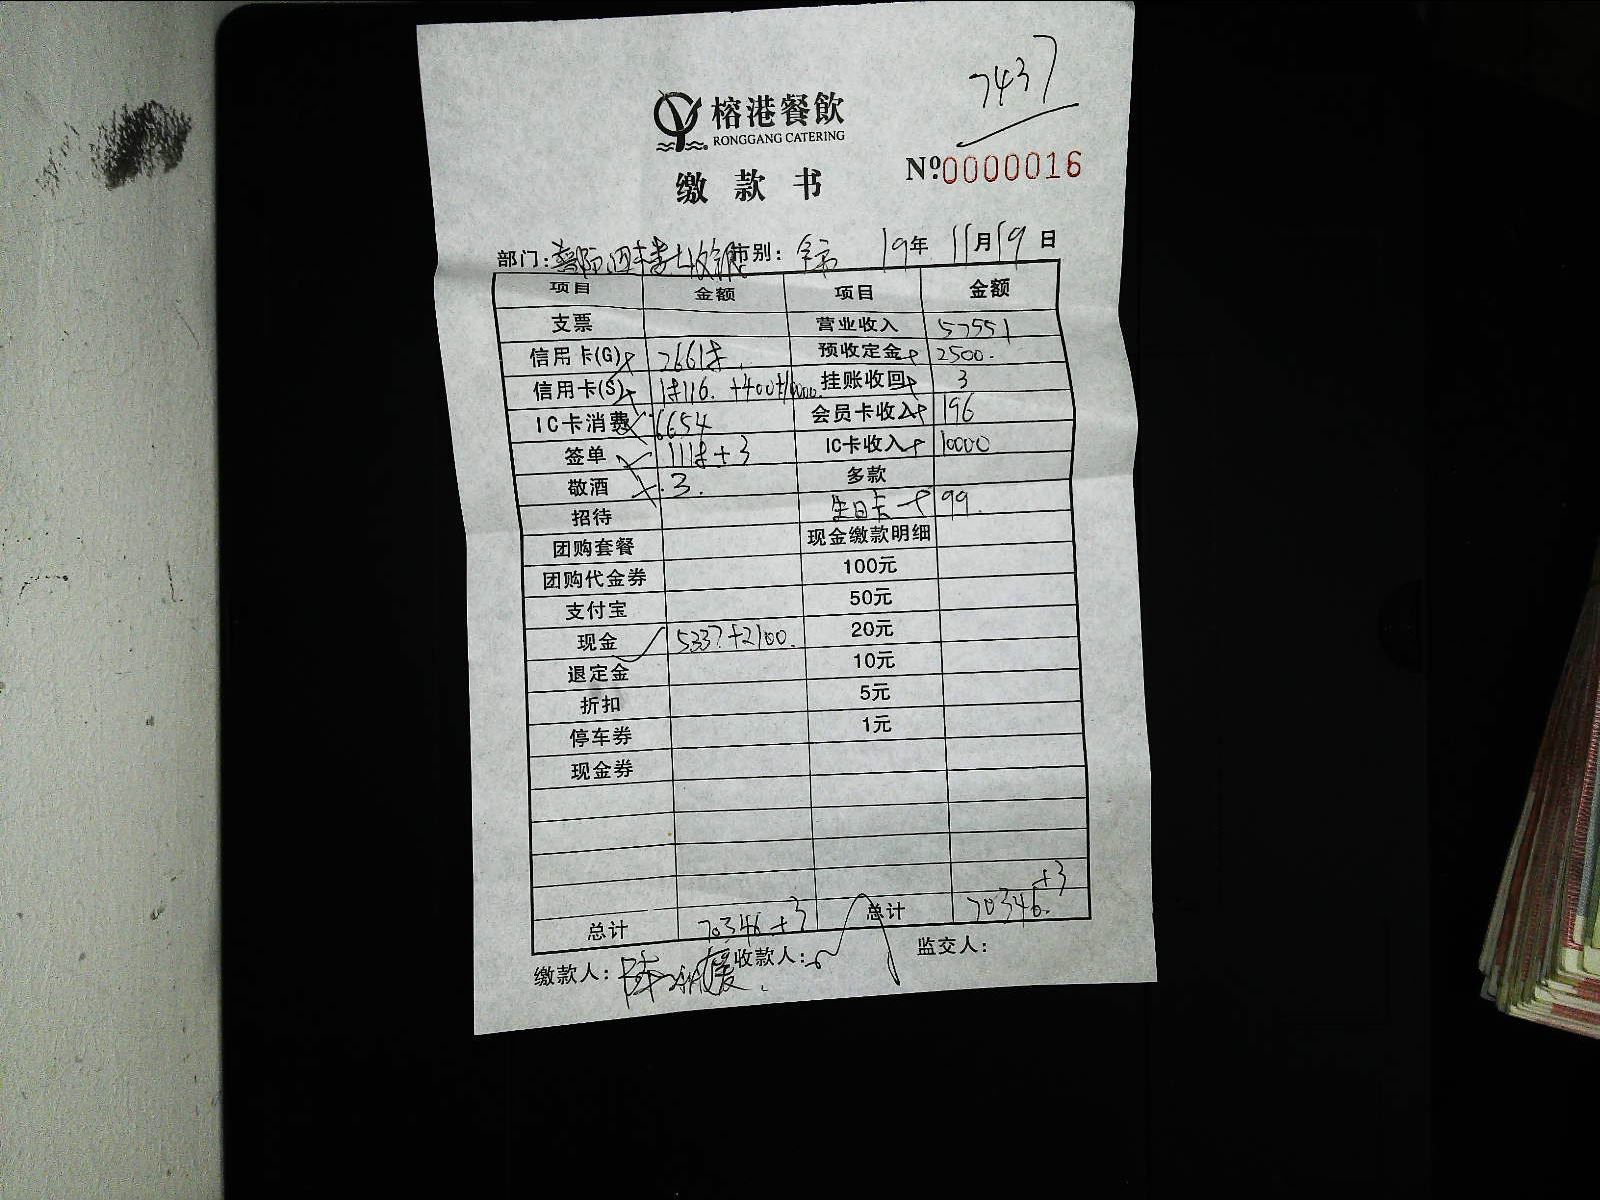 7437
榕港餐飲
RONGGANG CATERING
缴款书
№0000016
部门: 四楼收银 市别: 全市 19年 11月19日
项目 金额 项目 金额
支票 营业收入 57551
信用卡(G) 26618. 预收定金 2500.
信用卡(S) 18116. +400+10000. 挂账收回 3
IC卡消费 6654 会员卡收入 196
签单 1118+3 IC卡收入 10000
敬酒 3. 多款
招待 生日卡 99.
团购套餐 现金缴款明细
团购代金券 100元
支付宝 50元
现金 5337+2100. 20元
退定金 10元
折扣 5元
停车券 1元
现金券
总计 70346.+3 总计 70346.+3
缴款人: 收款人: 监交人: